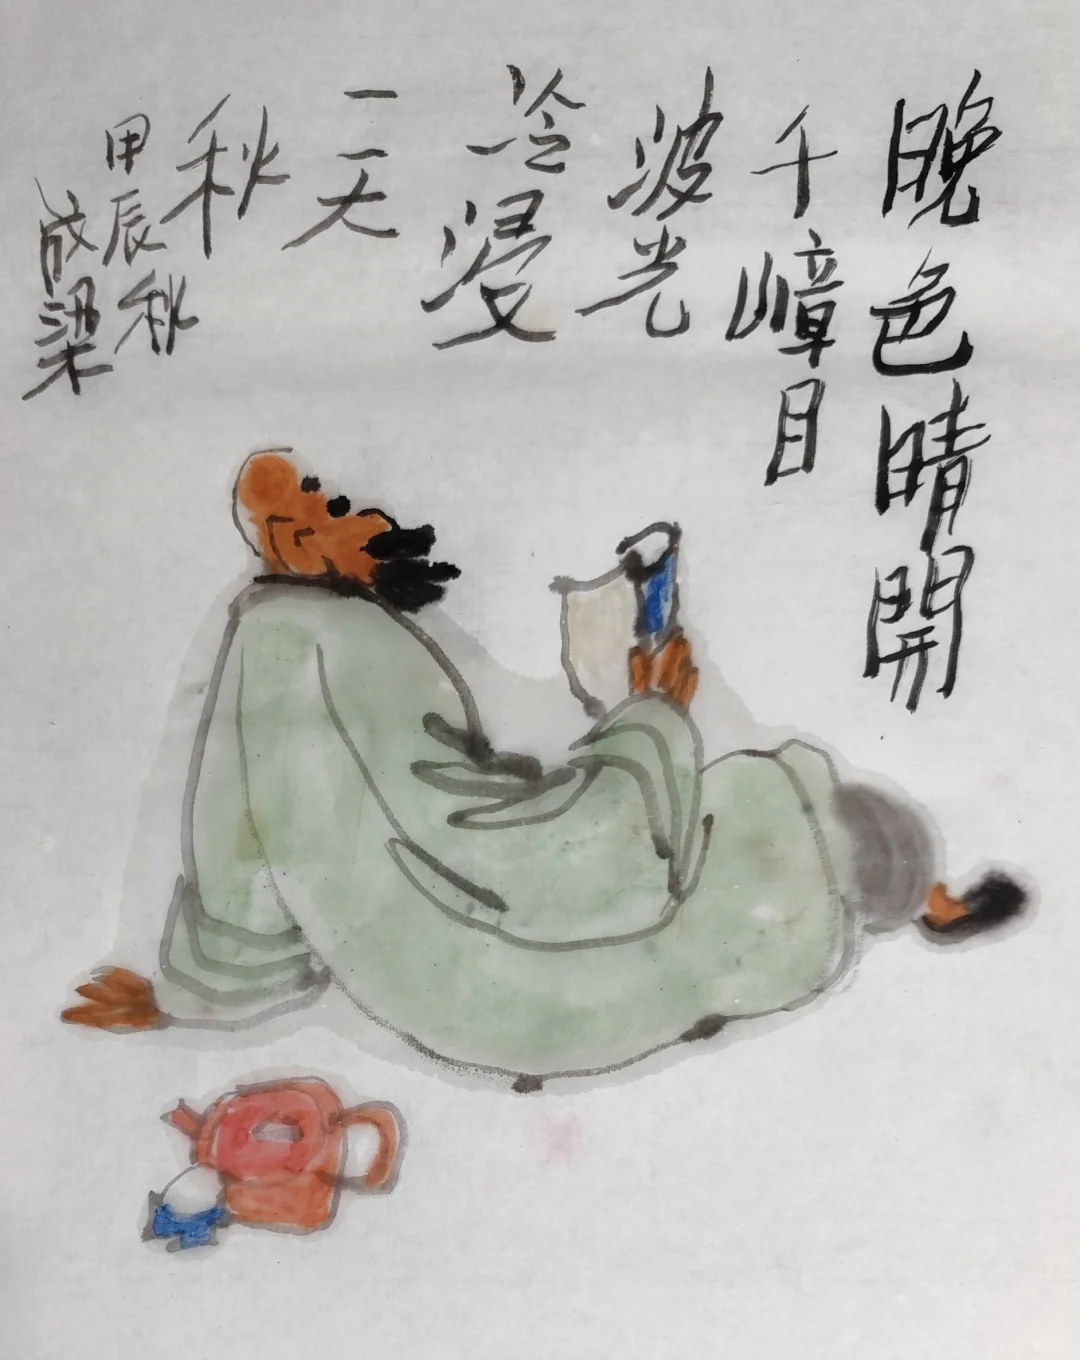 晚色晴開
千嶂目
波光
冷浸
一天
秋
甲辰秋
成梁